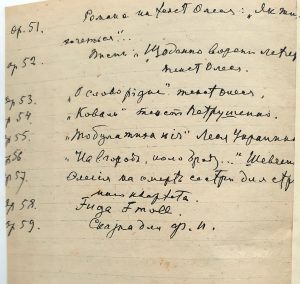 ор. 51. Романс на текст Олеся: „Як ти
хочеться"...
ор. 52. Пісні „Щоденно
текст Олеся.
ор. 53. „О слово рідне" текст Олеся.
ор. 54. „Коваль" текст Петрушенко.
ор. 55. Леся Українка
ор. 56 „На вгороді, коло броду..." Шевченк
ор. 57. Елегія на смерть сестри для стр
ного квартета.
ор. 58. Fuga F moll.
ор. 59. Сказка для ф. п.